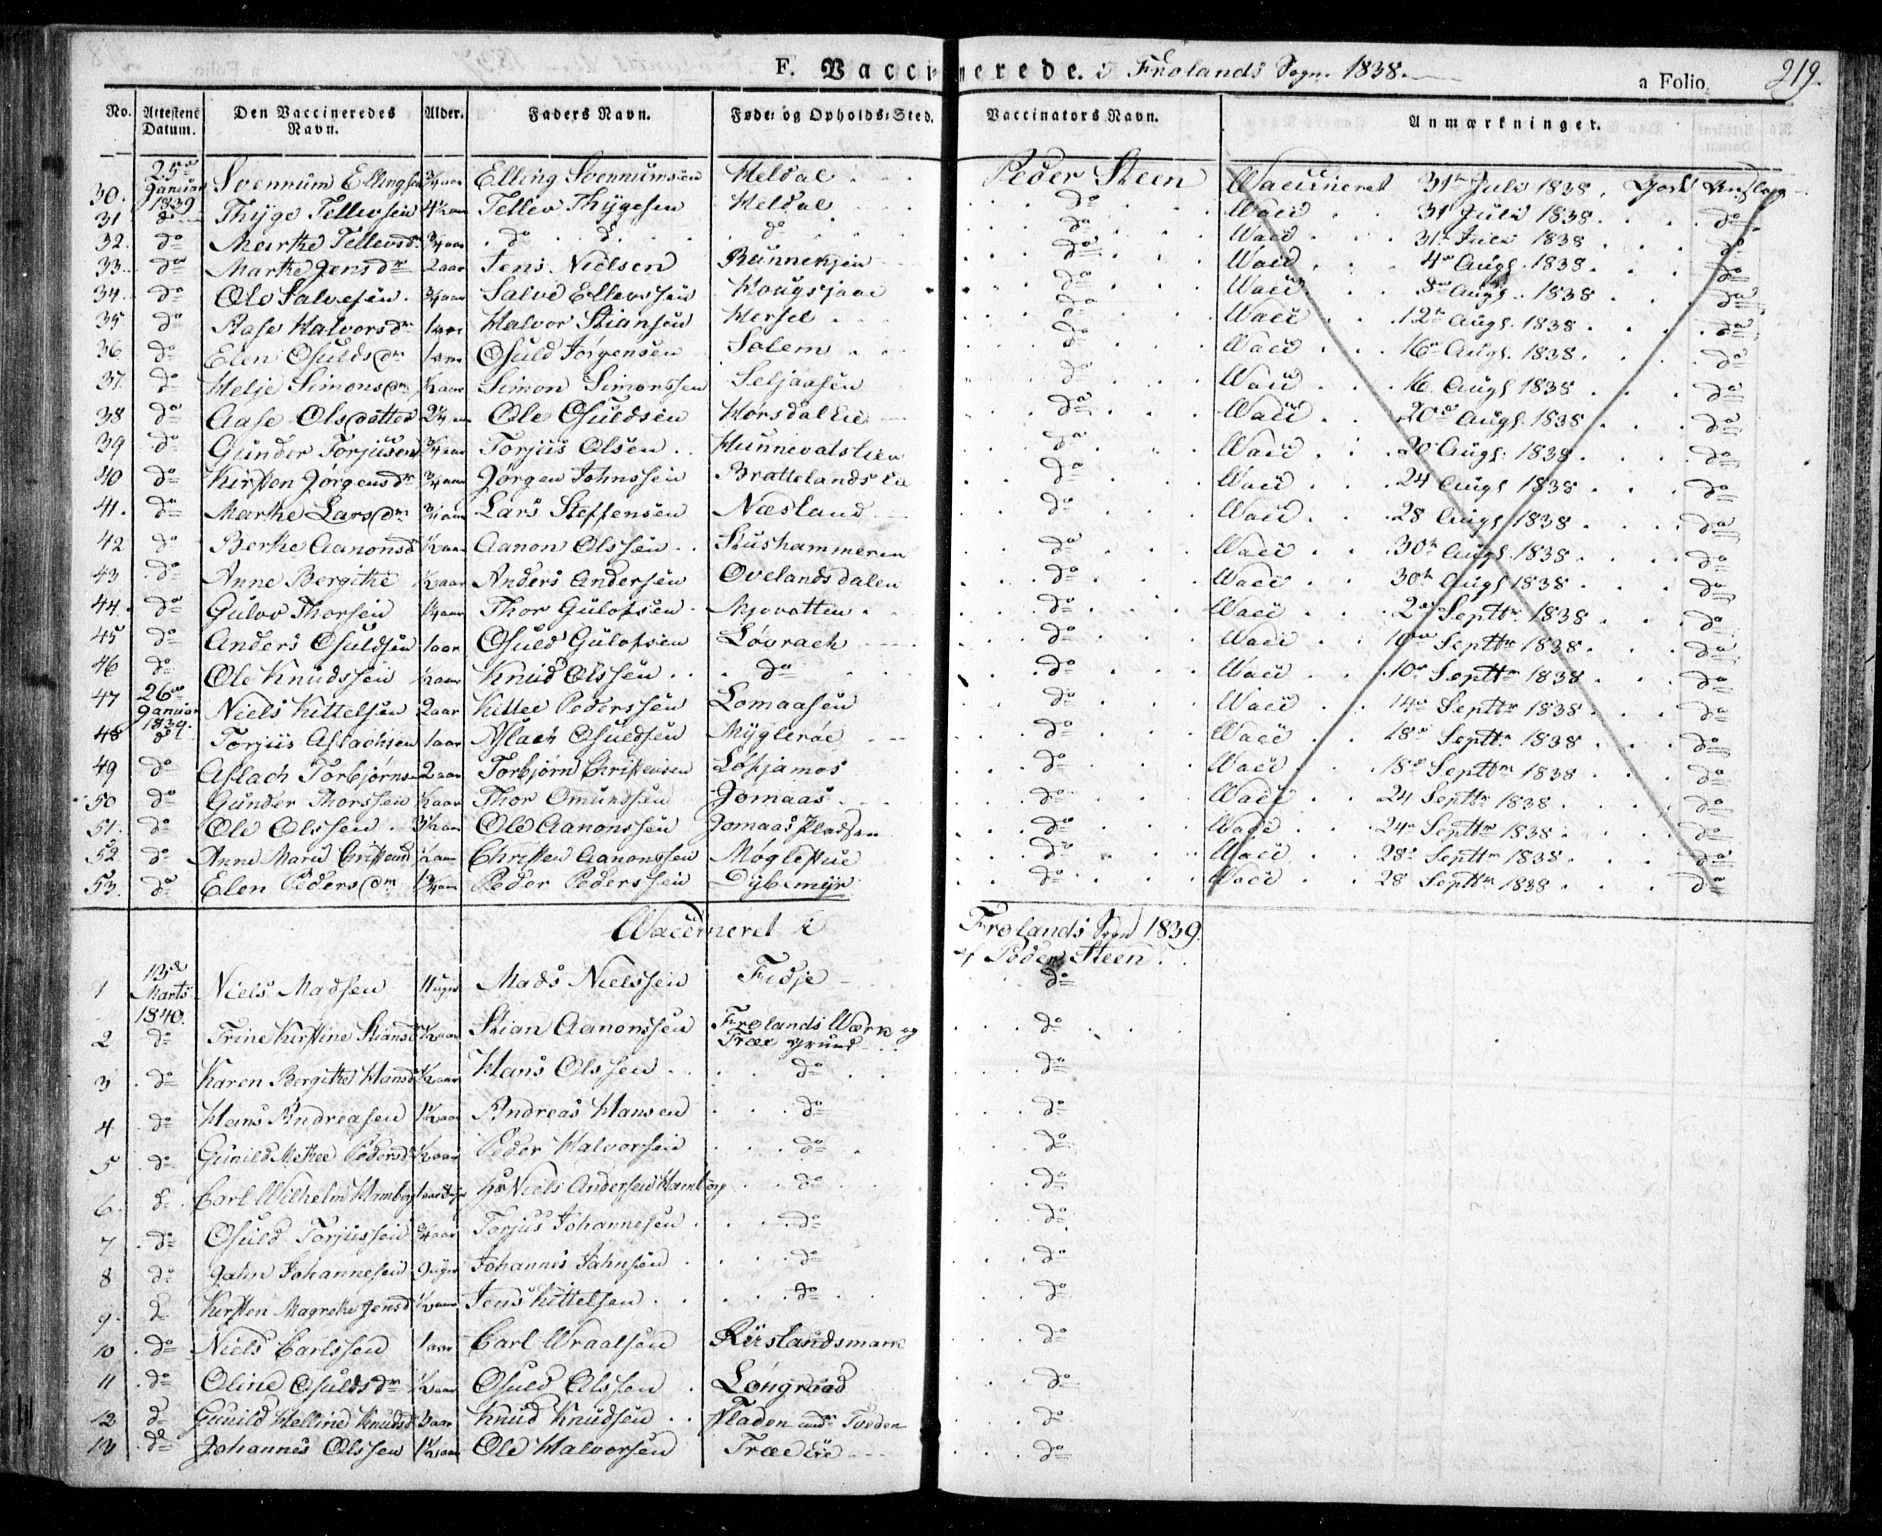 F. Vaccinerede. i Frolands Sogn. 1838. a Folio. 219.
No. Attestens Datum. Den Vaccineredes Navn. Alder. Faders Navn. Føde- og Opholds-Sted. Vaccinators Navn. Anmærkninger.
30. 25de Januar 1839 Svennum Ellingsen 3/4 aar Elling Svennumsen Heldal Peder Steen Vaccineret 31te Juli 1838.
31 do Thyge Tellevsen Tellev Thygesen Heldal do Vacc 31 Juli 1838. do
32. do Marthe Tellevsd. 3/4 aar do do do do Vacc 31te Juli 1838 do
33. do Marthe Jensdr 2 aar Jens Nielsen do Vacc 4de Augs. 1838. do
34. do Ole Salvesen. 3/4 aar Salve Ellevssen do Vacc Augs. 1838 do
35 do Aase Halvorsdr 1 aar Halvor Stiansen Hersel do Vacc 12te Augs. 1838. do
36. do Elen Osulds dr 1 aar Osuld Jørgensen Solem do Vacc 16de Augs. 1838. do
37. do Helje Simonsdr 1/2 aar Simon Simonssen Seljaasen do Vacc 16. Augs 1838 do
38 do Aase Olsdatter 2 1/4 aar Ole Osuldsen Horsdal Eie do Vacc 20de Augs. 1838 do
39 do Gunder Torjusen 3/4 aar Torjus Olsen do Vacc 20 Augs. 1838. do
40 do Kirsten Jørgensdr 3/4 aar Jørgen Johnssen Brattelands Eie do Vacc 24 Augs 1838 do
41. do Marthe Larsdr 3/4 aar Lars Steffensen Næsland do Vacc 28 Augs 1838 do
42 do Berthe Aanonsd 1/2 aar Aanon Olssen do Vacc 30te Augs. 1838 do
43 do Anne Bergithe 1/2 aar Anders Andersen Ovelandsdalen do Vacc 30te Augs 1838 do
44. do Gulov Thorsen 1/4 aar Thor Gulofsen Mjovatten do Vacc 2den Septbr. 1838 do
45 do Anders Osuldsen 1 aar Osuld Gulofsen Løvrach do Vacc 10de Septbr 1838. do
46 do Ole Knudssen 1/2 aar Knud Olssen do do Vacc 10de Septbr 1838 do
47 26de Januar 1839. Niels Kittelsen 2 aar Kittel Pederssen Lomaasen do Vacc 14de Septbr 1838. do
48 do Torjus Aslachsen 1 aar Aslach Osuldsen Myglerøe do Vacc 18de Septbr. 1838 do
49 do Aslach Torbjørnsen 2 aar Torbjørn Christensen do Vacc 18de Septbr 1838 do
50 do Gunder Thorssen 1/2 aar Thor Omundsen Jomaas do Vacc 24 Septbr 1838. do
51. do Ole Olssen 3 1/2 aar Ole Aanonssen Jomaas Pladsen do Vacc 24de Septbr 1838. do
52 do Anne Marie Christensd 1/2 aar Christen Aanonssen Møglestue do Vacc 28de Septbr 1838. do
53. do Elen Pedersdr 1 3/4 aar Peder Pederssen Dybemyr do Vacc 28 Septbr 1838 do
Vaccineret i Frolands Sogn 1839.
af Peder Steen
1 13de Marts 1840. Niels Madsen 11 uger Mads Nielssen Fidje do
2 do Trine Kirstine Stiansd 1/2 aar Stian Aanonssen Frolands Værk og Træe grund do
3 do Karen Bergithe Hansd 1/2 aar Hans Olssen do do
4 do Hans Andreasen 1 1/2 aar Andreas Hansen do do
5 do Gunild Methee Pedersd 1/2 aar Peder Halvorssen do do
6. do Carl Wilhelm Hamborg Hr Niels Andersen Hamborg do do
7 do Osuld Torjussen 3/4 aar Torjus Johannesen do do
8 do Jahn Johannesen 9 uger Johannes Jahnsen do do
9. do Kirsten Magrethe Jensd 1/2 aar Jens Kittelsen do do
10 do Niels Carlssen 1 aar Carl Wraalsen Riislandsmark do
11 do Oline Osuldsdr 1/2 aar Osuld Olssen Longraad do
12 do Gunild Helline Knudsd 3 aar Knud Knudsen Fladen und Tveden do
13 do Johannes Olssen 1 1/2 aar Ole Halvorsen Træe Eie do